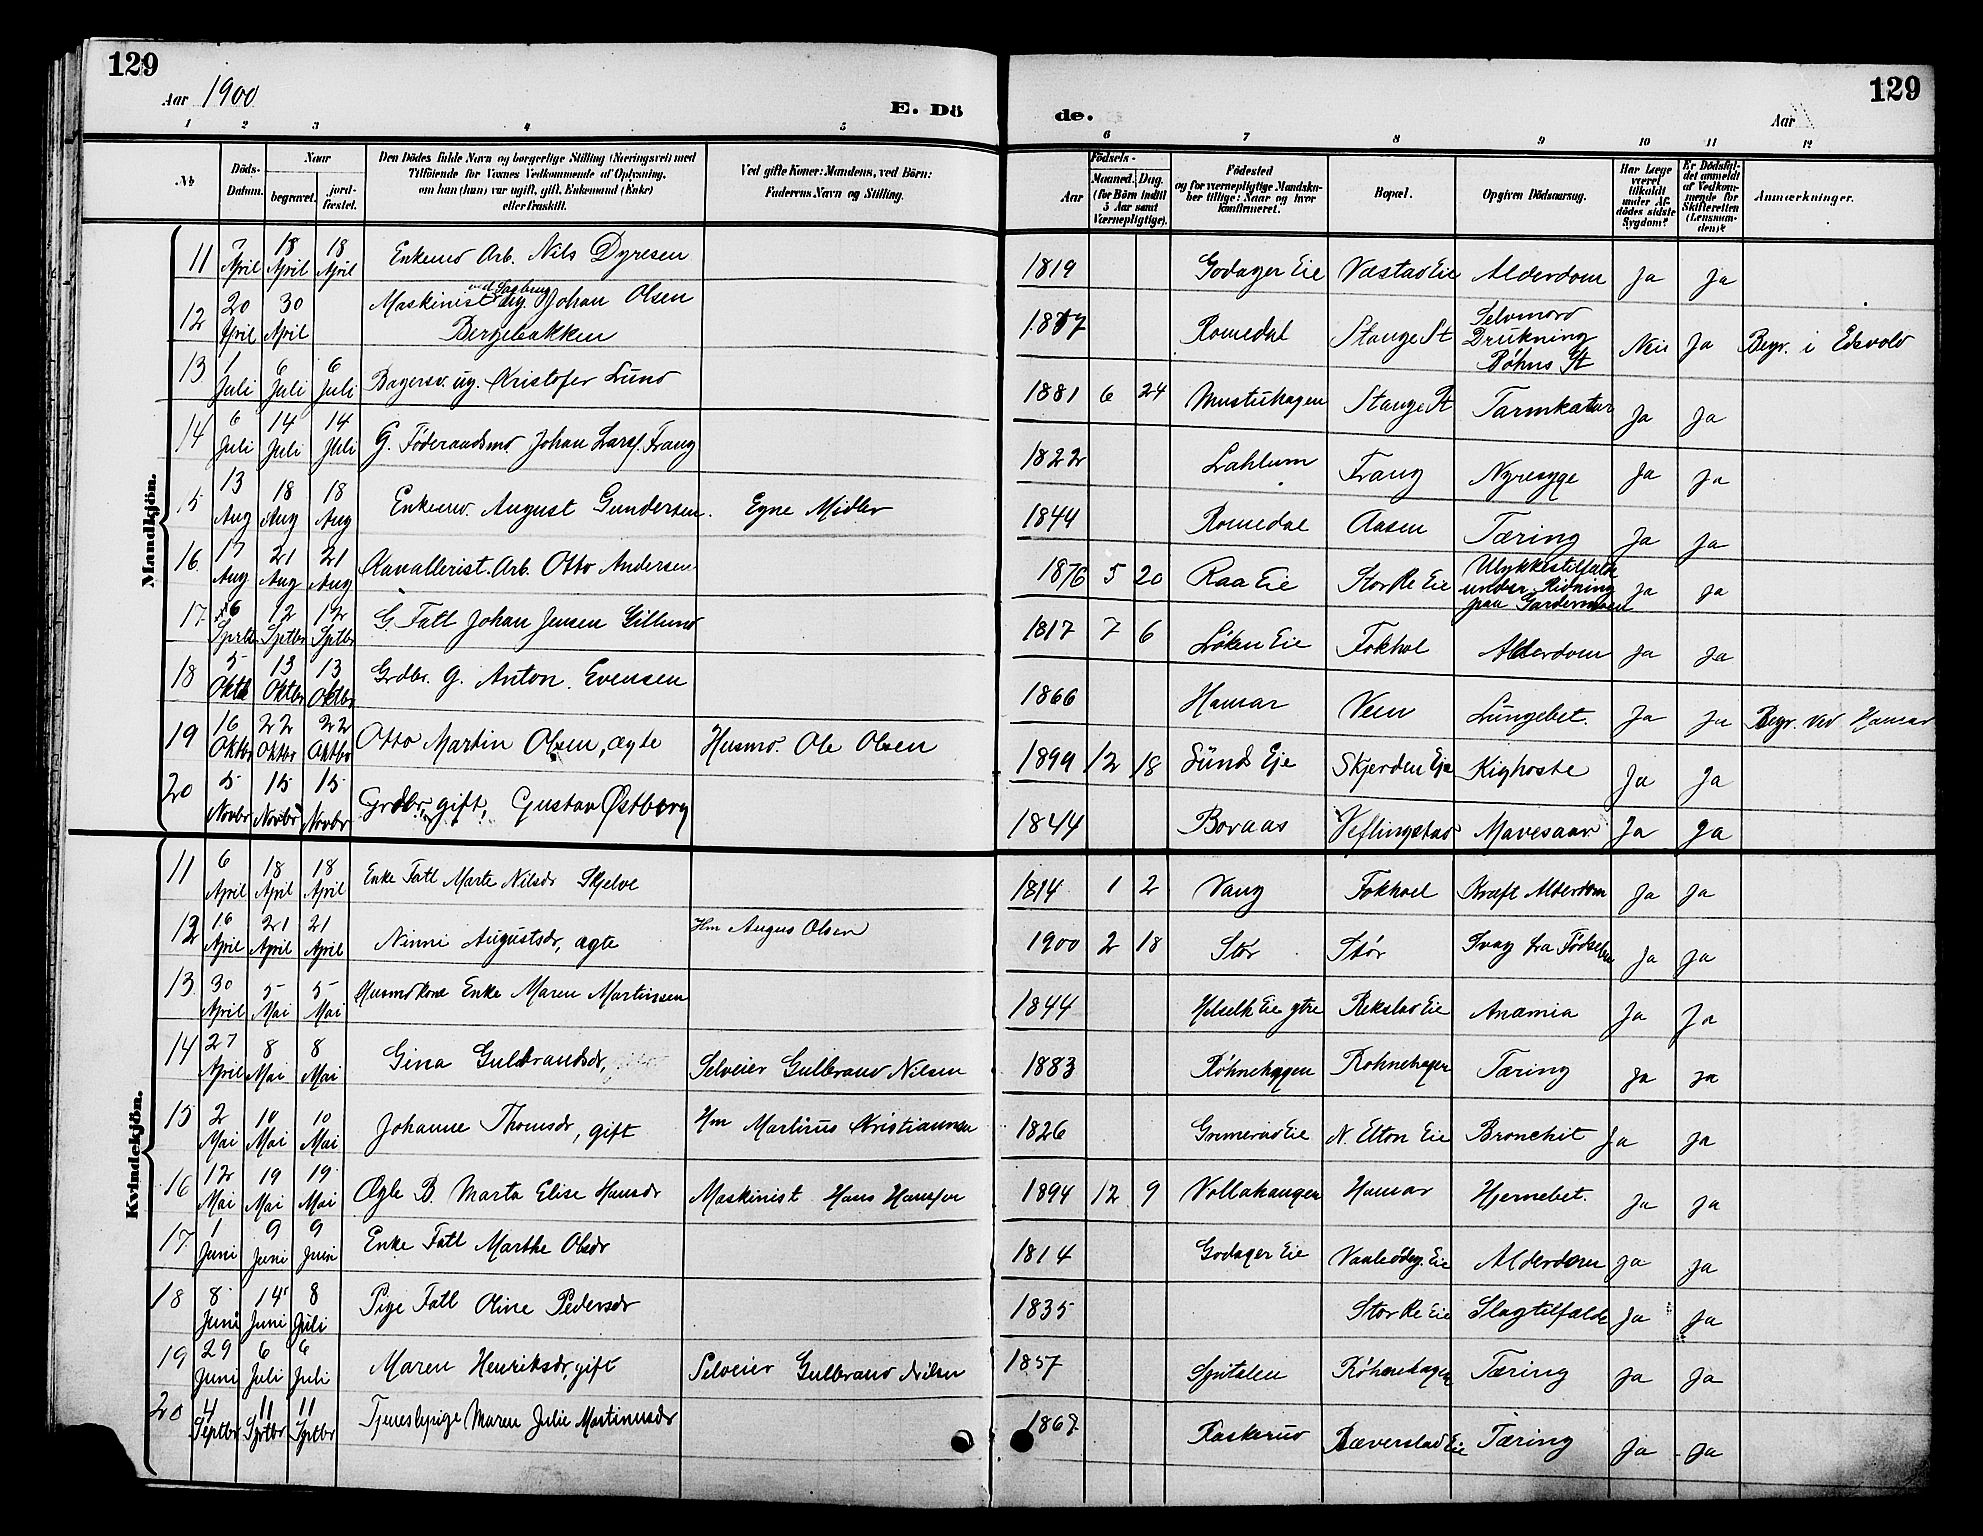 129
129
Aar 1900
E. Dö
de.
Aar
1 2 3 4 5 6 7 8 9 10 11 12
No
Döds-Datum.
Naar
begravet.
jord-fæstet.
Den Dödes fulde Navn og borgerlige Stilling (Næringsvei) med
Tilföiende for Voxnes Vedkommende af Oplysning,
om han (hun) var ugift, gift, Enkemand (Enke)
eller fraskilt.
Ved gifte Koner: Mandens, ved Börn:
Faderens Navn og Stilling.
Födsels-
Aar
Maaned. Dag.
(for Börn indtil
5 Aar samt
Værnepligtige).
Födested
og for værnepligtige Mandsku-
ber tillige: Naar og hvor
konfirmeret.
Bopæl.
Opgiven Dödsaarsag.
Har Læge
været
tilkaldt
under Af-
dödes sidste
Sygdom?
Er Dödsfal-
det anmeldt
af Vedkom-
mende for
Skifteretten
(Lensman-
den)?
Anmærkninger.
Mandkjön.
11 7 April 18 April 18 April Enkemd Arb. Nils Dyresen 1819 Godager Eie Væstad Eie Alderdom Ja Ja
12 20 April 30 April Maskinist ved Sagbrug ug. Johan Olsen Bergebakken 1877 Romedal Stange St Selvmord Drukning Bøhns St Nei Ja Begr. i Edsvold
13 1 Juli 6 Juli 6 Juli Bagersv. ug. Kristofer Lund 1881 6 24 Mustuhagen Stange St Tarmkatar Ja Ja
14 6 Juli 14 Juli 14 Juli G. Föderaadsmd Johan Larss. Frang 1822 Lahlum Frang Nyresyge Ja Ja
5 13 Aug 18 Aug 18 Aug Enkemd. August Gundersen. Egne Midler 1844 Romedal Aasen Tæring Ja Ja
16 17 Aug 21 Aug 21 Aug Kavallerist. Arb. Otto Andersen 1876 5 20 Raa Eie StorRe Eie Ulykkestilfælde under Ridning paa Gardermoen Ja Ja
17 6 Sptbr 12 Sptbr 12 Sptbr G. Fattl Johan Jensen Gillund 1817 7 6 Løken Eie Fokhol Alderdom Ja Ja
18 5 Oktb 13 Oktbr 13 Oktbr Grdbr. G. Anton Evensen 1866 Hamar Vem Lungebet. Ja Ja Begr. ved Hamar
19 16 Oktbr 22 Oktbr 22 Oktbr Otto Martin Olsen, ægte Husmd. Ole Olsen 1899 12 18 Lunds Eje Skjerden Eje Kighoste Ja Ja
20 5 Novbr 15 Novbr 15 Novbr Grdbr, gift, Gustav Østberg 1844 Boraas Veflingstad Mavesaar Ja Ja
Kvindekjön.
11 6 April 18 April 18 April Enke Fatl Marte Nilsdr Skjelve 1814 1 2 Vang Fokhoel Kræft Alderdom Ja Ja
12 16 April 21 April 21 April Ninni Augustsdr, ægte Hm Augus Olsen 1900 2 18 Stør Stør Svag fra Fødselen Ja Ja
13 30 April 5 Mai 5 Mai Husmdkone Enke Maren Martinsen 1844 Hdselh Eie ytre Rekstad Eie Anæmia Ja Ja
14 27 April 8 Mai 8 Mai Gina Gulbrandsdr, Selveier Gulbrand Nilsen 1883 Røhnehagen Rohnehagen Tæring Ja Ja
15 2 Mai 10 Mai 10 Mai Johanne Thomsdr, gift Hm Martinus Kristiansen 1826 Gremerud Eie N. Elton Eie Bronchit Ja Ja
16 12 Mai 19 Mai 19 Mai Ægte B. Marta Elise Hansdr Maskinist Hans Hansen 1894 12 9 Vollahaugen Hamar Hjernebet. Ja Ja
17 1 Juni 9 Juni 9 Juni Enke Fatl Marthe Olsdr 1814 Godager Eie Vaaledeeg. Eie Alderdom Ja Ja
18 8 Juni 14 Juni 8 Juli Pige Fatl Oline Pedersdr 1835 StorRe Eie Slagtilfælde Ja Ja
19 29 Juni 6 Juli 6 Juli Maren Henriksdr, gift Selveier Gulbrand Nilsen 1857 Spitalen Røhnehagen Tæring Ja Ja
20 4 Septbr 11 Sptbr 11 Sptbr Tjenestepige Maren Julie Martinusdr 1867 Raskerud Bæverstad Eie Tæring Ja Ja